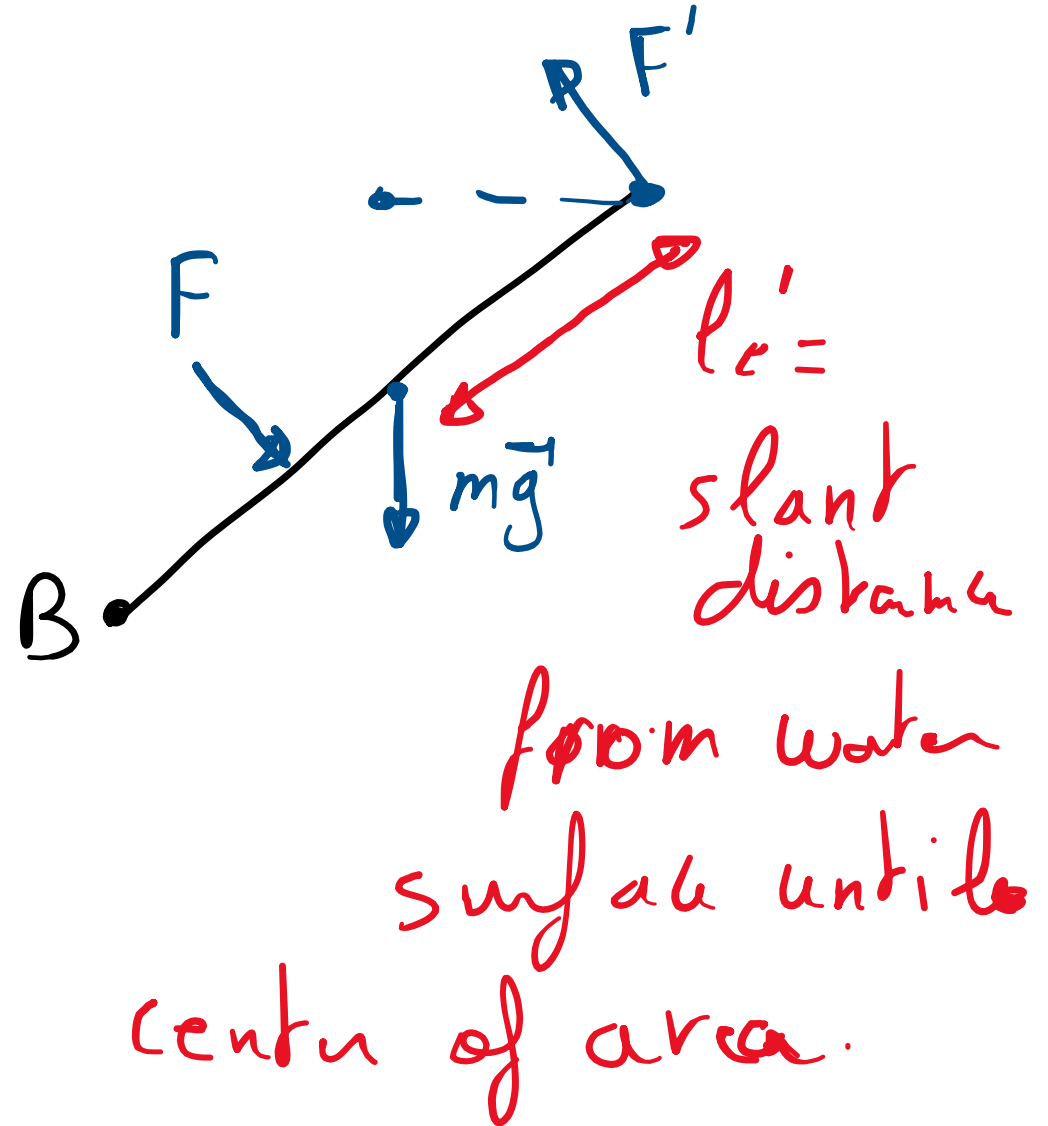 F'
F
lc' =
mg⃗
slant
distance
B
from water
surface until
center of area.